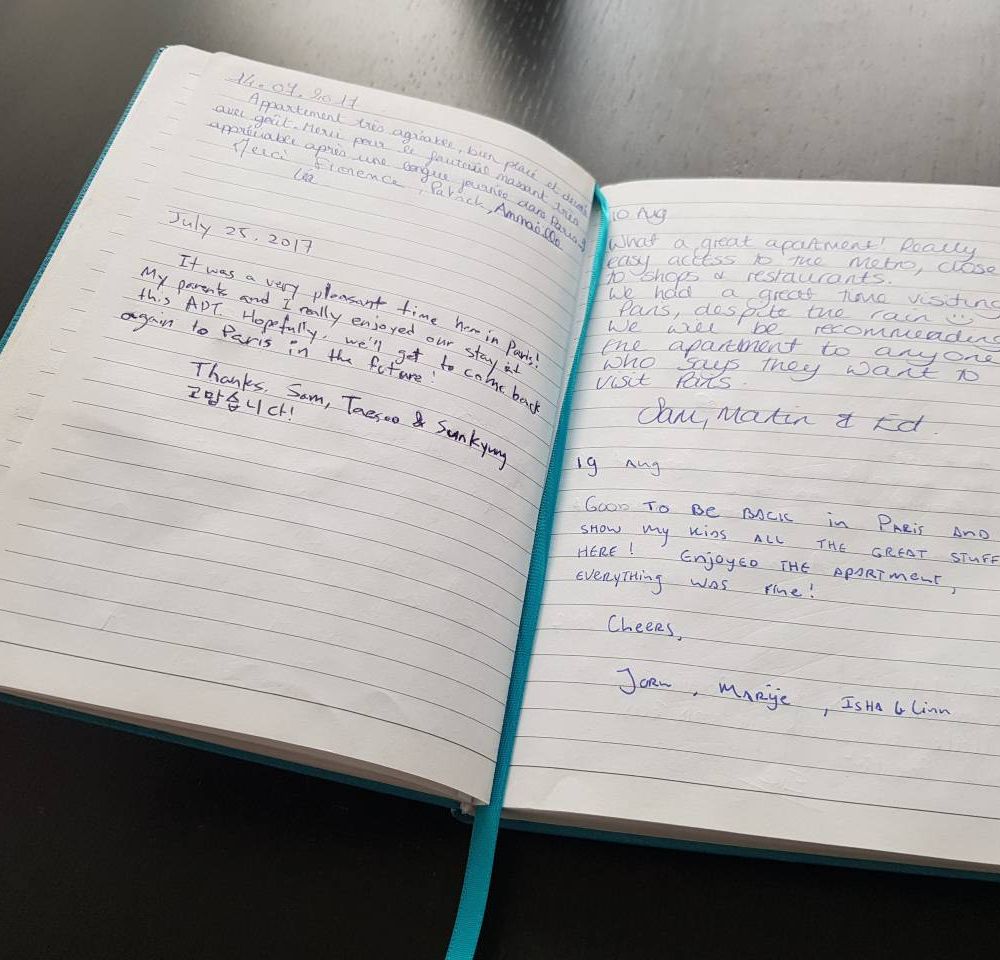 14.07.2017
Appartement très agréable, bien placé et décoré
avec goût. Merci pour le fauteuil massant très
appréciable après une longue journée dans Paris
Merci Florence, Patrick, Ammaëlle
Léa
July 25. 2017
It was a very pleasant time here in Paris!
My parents and I really enjoyed our stay at
this APT. Hopefully, we'll get to come back
again to Paris in the future!
Thanks, Sam, Taesoo & Sunkyung
고맙습니다!
10 Aug
What a great apartment! Really
easy access to the Metro, close
to shops & restaurants.
We had a great time visiting
Paris, despite the rain ☺
We will be recommending
the apartment to anyone
who says they want to
visit Paris.
Sam, Martin & Ed.
19 Aug
GOOD TO BE BACK in PARIS AND
SHOW my KIDS ALL THE GREAT STUFF
HERE! Enjoyed THE APARTment,
EVERYTHING WAS fine!
CheeRS,
JORN, MARije, ISHA & Linn